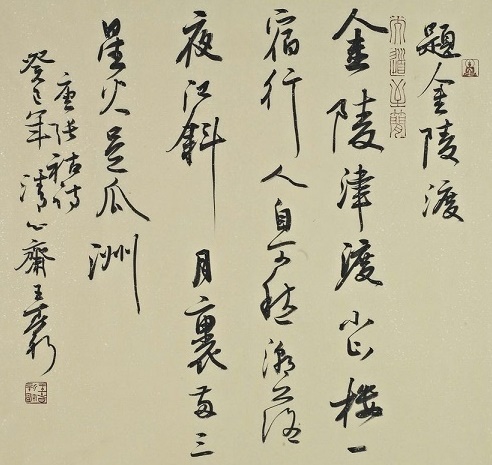 題金陵渡
金陵津渡小山樓一
宿行人自可愁潮落
夜江斜月裏兩三
星火是瓜洲
唐張祜詩
癸巳年清心齋王